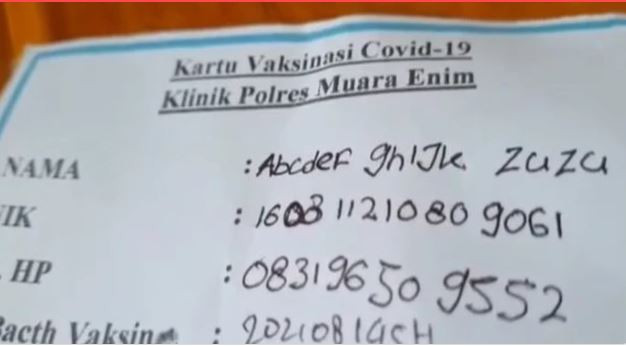 Kartu Vaksinasi Covid-19
Klinik Polres Muara Enim
NAMA : Abcdef ghIJk Zuzu
NIK : 160811210809061
HP : 083196509552
Bacth Vaksin :